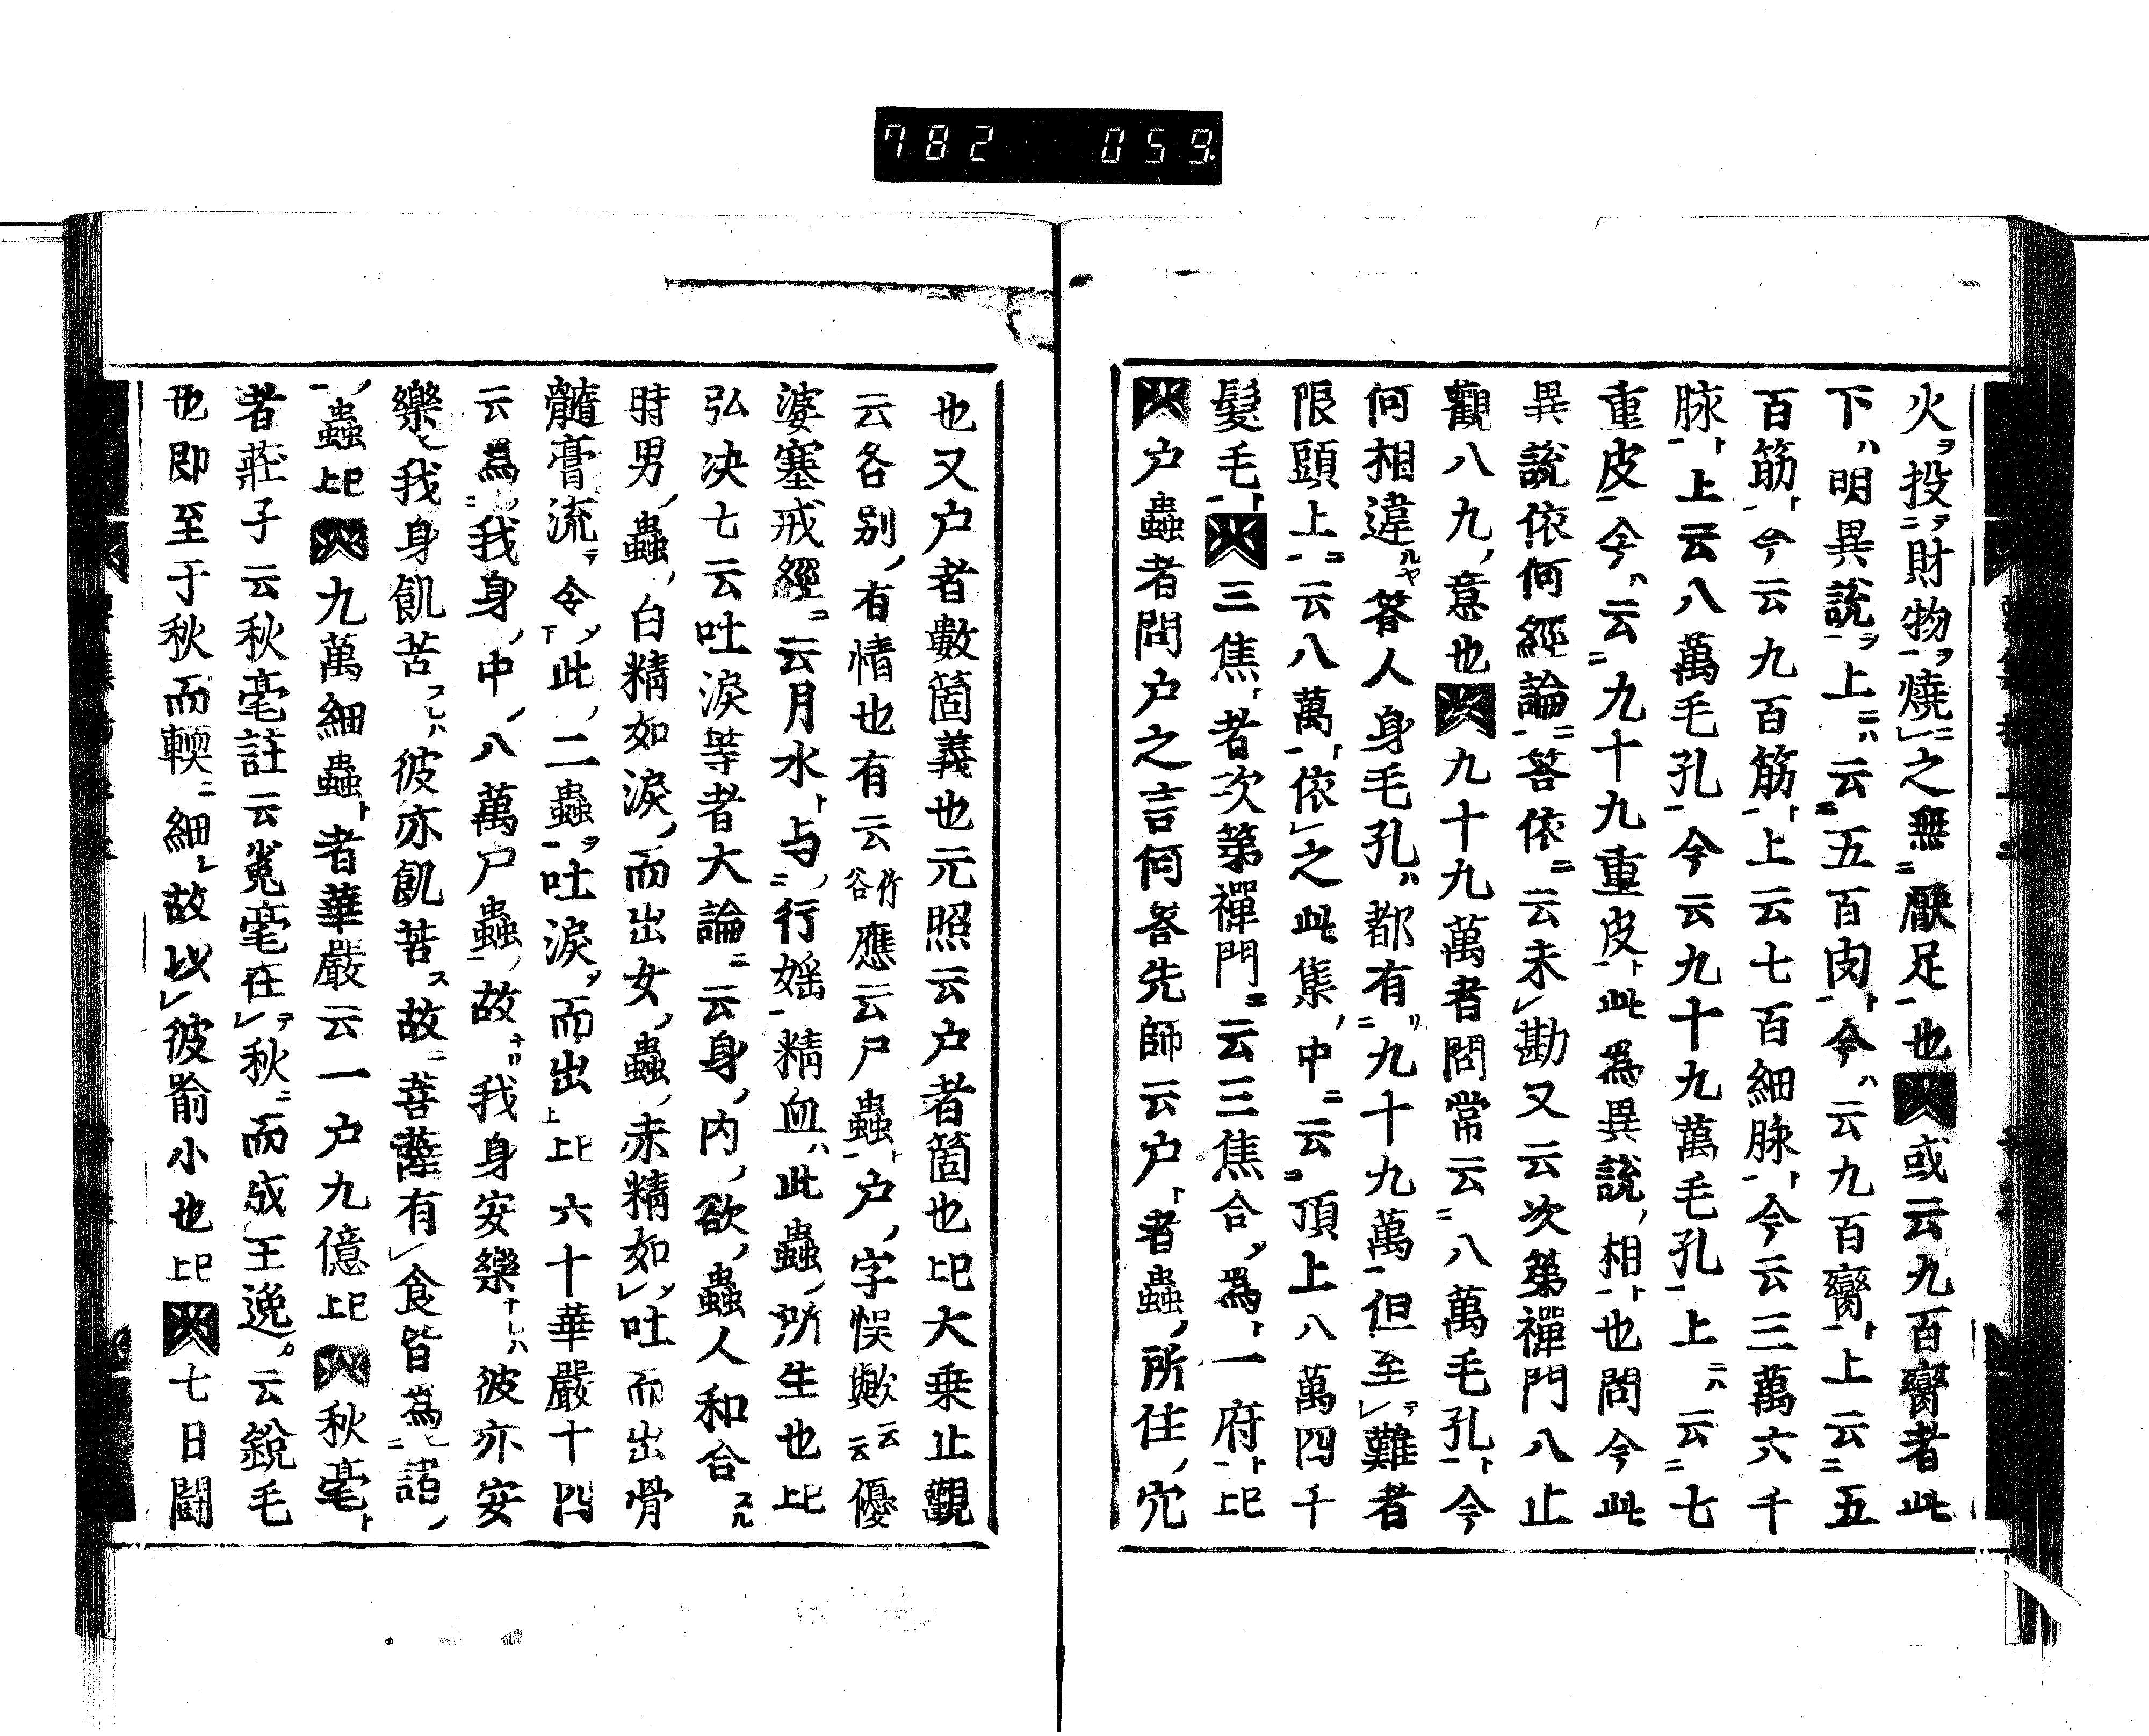 782 059
火ヲ投ニ財物一ヲ燒レ之無ニ厭足一也或云九百臠者此
下ハ明異說一ヲ上ニハ云ニ五百肉一ト今ハ云九百臠一ト上云ニ五
百筋一ト今云九百筋一ト上云七百細脉一ト今云三萬六千
脉一ト上云八萬毛孔一今云九十九萬毛孔一上ニハ云ニ七
重皮一今ハ云ニ九十九重皮一ト此爲異說ノ相一ト也問今此
異說依何經論一ニ答依ニ云未レ勘又云次第禪門八止
觀八九ノ意也九十九萬者問常云ニ八萬毛孔一ト今
何相違ルヤ答人身毛孔ハ都有ニリ九十九萬一但至レテ難者
限頭上一ニ云八萬一ト依レ之此集ノ中ニ云ニ頂上八萬四千
髮毛一ト三焦ト者次第禪門ニ云三焦合ノ爲ト一府一ト已上
户蟲者問户之言何答先師云户ト者蟲ノ所住ノ穴
也又户者數箇義也元照云户者箇也已上大乘止觀
云各別ノ有情也有云竹谷應云尸蟲一ト户ノ字悞歟云云優
婆塞戒經ニ云月水ト与ニ行婬一精血ハ此蟲ノ所生也已上
弘决七云吐淚等者大論ニ云身ノ内ノ欲ノ蟲人和合スル
時男ノ蟲ノ白精如淚ノ而出女ノ蟲ノ赤精如レ吐而出骨
髓膏流テ令下ノ此ノ二蟲一ヲ吐淚ノ而出上已上六十華嚴十四
云爲ニ我身ノ中ノ八萬尸蟲一ノ故ナリ我身安樂ナレハ彼亦安
樂ヒ我身飢苦スレハ彼亦飢苦ス故ニ菩薩有レ食皆爲ニ諸ノ
蟲一已上九萬細蟲ト者華嚴云一户九億已上秋毫ト
者莊子云秋毫註云兔毫在レテ秋ニ而成王逸カ云銳毛
也即至于秋而輭ニ細レ故以レ彼喻小也已上七日鬪